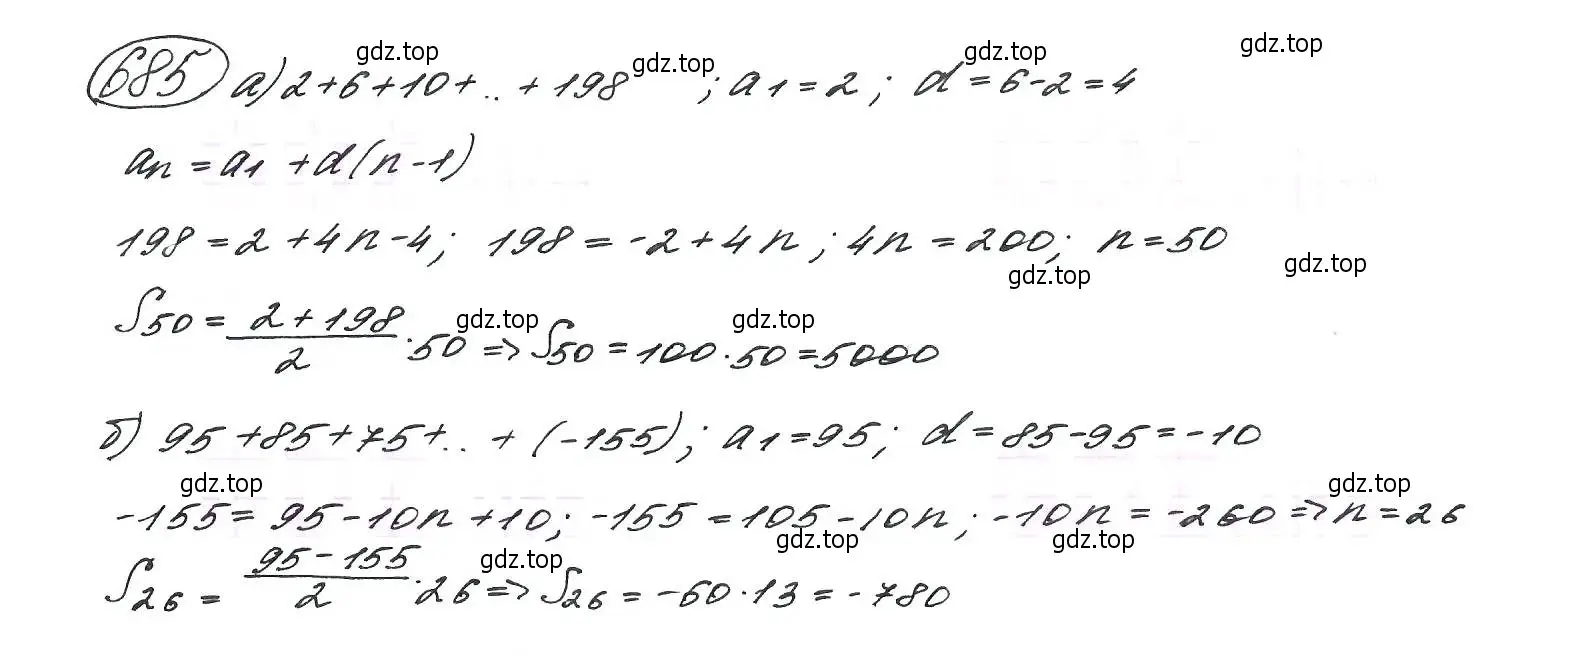 685 а) 2+6+10+..+198; a1=2; d=6-2=4
an=a1+d(n-1)
198=2+4n-4; 198=-2+4n; 4n=200; n=50
S50=(2+198)/2·50 => S50=100·50=5000
б) 95+85+75+..+(-155); a1=95; d=85-95=-10
-155=95-10n+10; -155=105-10n; -10n=-260 => n=26
S26=(95-155)/2·26 => S26=-60·13=-780
gdz.top
gdz.top
gdz.top
gdz.top
gdz.top
gdz.top
gdz.top
gdz.top
gdz.top
gdz.top
gdz.top
gdz.top
gdz.top